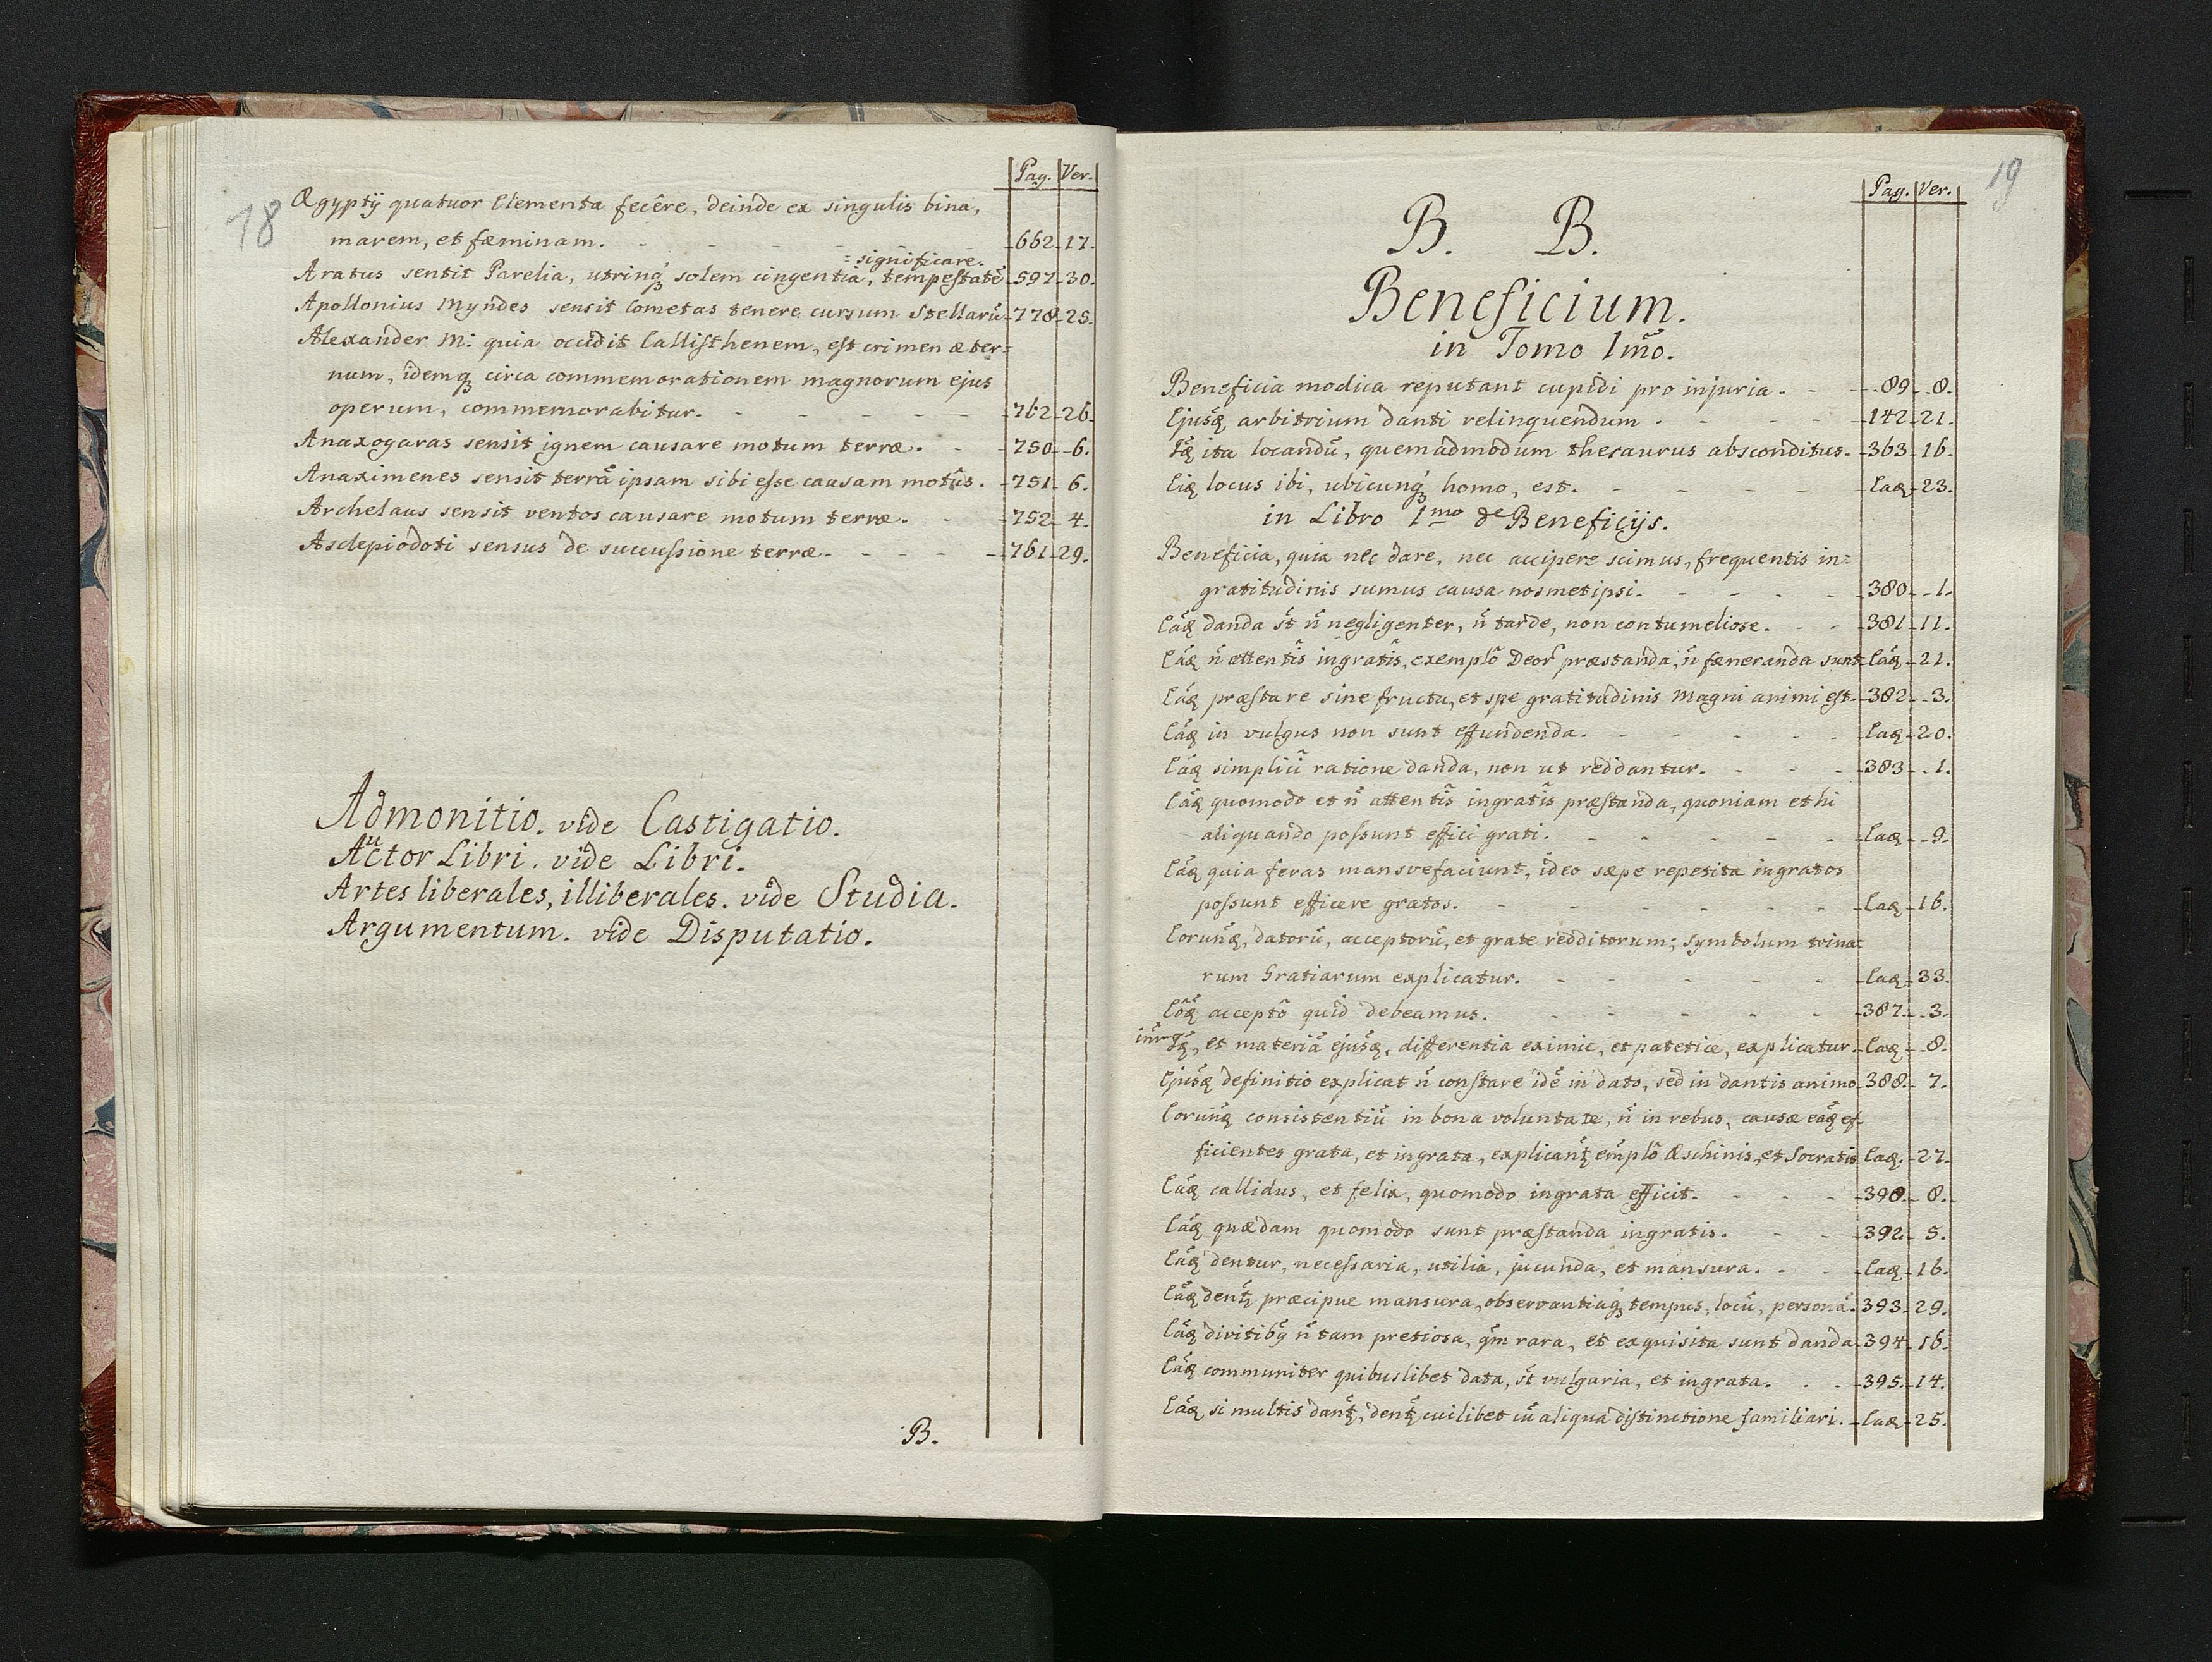 Pag. Ver.
18
Ægyptÿ quatuor Elementa fecêre, deinde ex singulis bina,
marem, et fæminam. - - - - - - 662. 17.
= significare.
Aratus sentit Parelia, utrinq́ꝫ solem cingentia, tempeſtatē 597. 30.
Apollonius Myndes sensit Cometas tenere cursum Stellarū 778. 25.
Alexander M: quia occidit Calliſthenem, eſt crimen æter=
num, idemqꝫ circa commemorationem magnorum ejus
operum, commemorabitur. - - - - - 762. 26.
Anaxogaras sensit ignem causare motum terræ. - - 750. 6.
Anaximenes sensit terrā ipsam sibi eſse causam motûs. - 751. 6.
Archelaus sensit ventos causare motum terræ. - - 752. 4.
Asclepiodoti sensus de succuſsione terræ. - - - - 761. 29.
Admonitio. vide Castigatio.
Auctor Libri. vide Libri.
Artes liberales, illiberales. vide Studia.
Argumentum. vide Disputatio.
B.
19
Pag. Ver.
B. B.
Beneficium.
in Tomo 1m̃o.
Beneficia modica reputant cupidi pro injuria. - - 89. 8.
Ejusq̃, arbitrium danti relinquendum. - - - - 142. 21.
Idq̃ ita locandū, quemadmodum thesaurus absconditus. 363. 16.
Eiq̃ locus ibi, ubicunq́ꝫ homo, est. - - - - - Eaq̃ 23.
in Libro 1mo de Beneficijs.
Beneficia, quia nec dare, nec accipere scimus, frequentis in=
gratitudinis sumus causa nosmetipsi. - - - - - 380. 1.
Eáq̃ danda st̃ ñ negligenter, ñ tarde, non contumeliose. - - 381. 11.
Eáq̃ ñ attentĩs ingratĩs, exemplõ Deor̃ præstanda, ñ fæneranda sunt Eáq̃ 21.
Eáq̃ præſtare sine fructu, et spe gratitudinis Magni animi eſt. 382. 3.
Eáq̃ in vulgus non sunt effundenda. - - - - - Eaq̃ 20.
Eáq̃ simplici ratione danda, non ut reddantur. - - - 383. 1.
Eáq̃ quomodo et ñ attentĩs ingratĩs præſtanda, quoniam et hi
aliquando poſsunt effici grati. - - - - - Eaq̃ 9.
Eáq̃ quia feras mansvefaciunt, ideo sæpe repetita ingratos
poſsunt efficere gratos. - - - - - - Eaq̃ 16.
Eorunq̃, datorū, acceptorū, et grate redditorum; symbolum trina=
rum Gratiarum explicatur. - - - - - Eaq̃ 33.
Eõq̃ acceptõ quid debeamus. - - - - - - 387. 3.
inr̃ Idq̃, et materiã ejusq̃, differentia eximie, et patetice, explicatur. Eaq̃ 8.
Ejusq̃ definitio explicat ñ conſtare idẽ in dato, sed in dantis animo 388. 7.
Eorunq̃ consistentiū in bona voluntate, ñ in rebus, causæ eáq̃ ef=
ficientes grata, et ingrata, explicant̃ em̃plõ Æschinis, et Socratis Eaq̃. 27.
Eáq̃ callidus, et felix, quomodo ingrata efficit. - - - 390. 8.
Eáq̃ quædam quomodo sunt præſtanda ingratis. - - 392. 5.
Eáq̃ dentur, neceſsaria, utilia, jucunda, et mansura. - - Eaq̃ 16.
Eáq̃ dent̃ præcipue mansura, observantiaqꝫ tempus, locū, personã. 393. 29.
Eáq̃ divitibꝫ ñ tam pretiosa, qm̃ rara, et exquisita sunt danda 394. 16.
Eáq̃ communiter quibuslibet data, st̃ vulgaria, et ingrata. - - 395. 14.
Eáq̃ si multis dant̃, dent̃ cuilibet cū aliqua diſtinctione familiari. Eaq̃ 25.